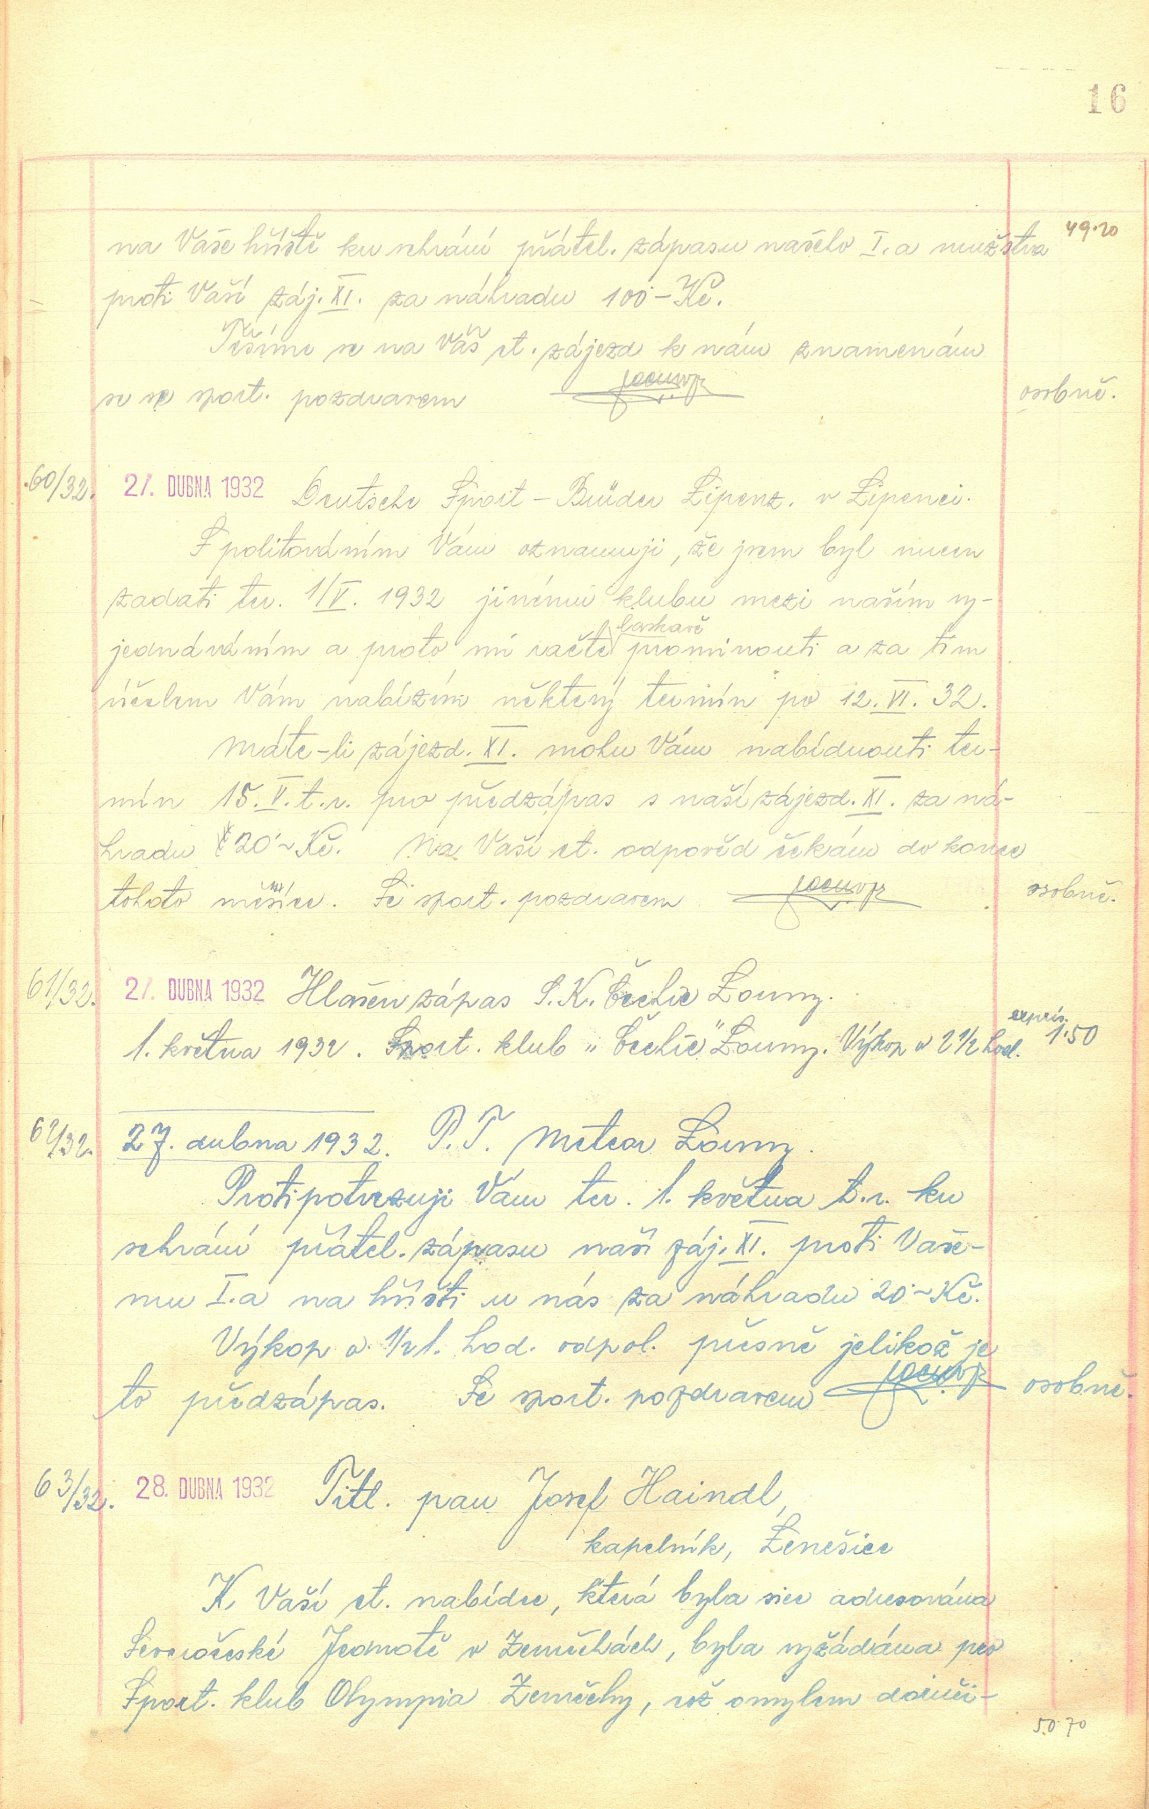 16
49·20
na Vaše hřiště ku sehrání přátel. zápasu našeho I.a mužstva
proti Vaší záj. XI. za náhradu 100·– Kč.
Těšíme se na Váš ct. zájezd k nám znamenám
se se sport. pozdravem
osobně.
60/32. 27. DUBNA 1932 Deutsche Sport – Brüder Lipenz. v Lipenci.
S politováním Vám oznamuji, že jsem byl nucen
zadati ter. 1/V. 1932 jinému klubu mezi naším vy-
jednáváním a proto mi račte laskavě prominouti a za tím
účelem Vám nabízím některý termín po 12. VI. 32.
Máte-li zájezd. XI. mohu Vám nabídnouti ter-
mín 15. V. t. r. pro předzápas s naší zájezd. XI. za ná-
hradu 20·– Kč. Na Vaši ct. odpověd čekám do konce
tohoto měsíce. Se sport. pozdravem
osobně.
61/32. 27. DUBNA 1932 Hlášen zápas S. K. Čechie Louny.
expres.
1. května 1932. Sport. klub „Čechie" Louny. Výkop v 2 1/2 hod. 1·50
62/32. 27. dubna 1932. P. T. Meteor Louny.
Protipotvrzuji Vám ter. 1. května t. r. ku
sehrání přátel. zápasu naší záj. XI. proti Vaše-
mu I.a na hřišti u nás za náhradu 20·– Kč.
Výkop v 1/2 1. hod. odpol. přesně jelikož je
to předzápas. Se sport. pozdravem
osobně.
63/32. 28. DUBNA 1932 Titl. pan Josef Haindl,
kapelník, Ženešice
K Vaší ct. nabídce, která byla sice adresována
Severočeské Jednotě v Zeměchách, byla vyžádána pro
Sport. klub Olympia Zeměchy, což omylem doruči-
50 70